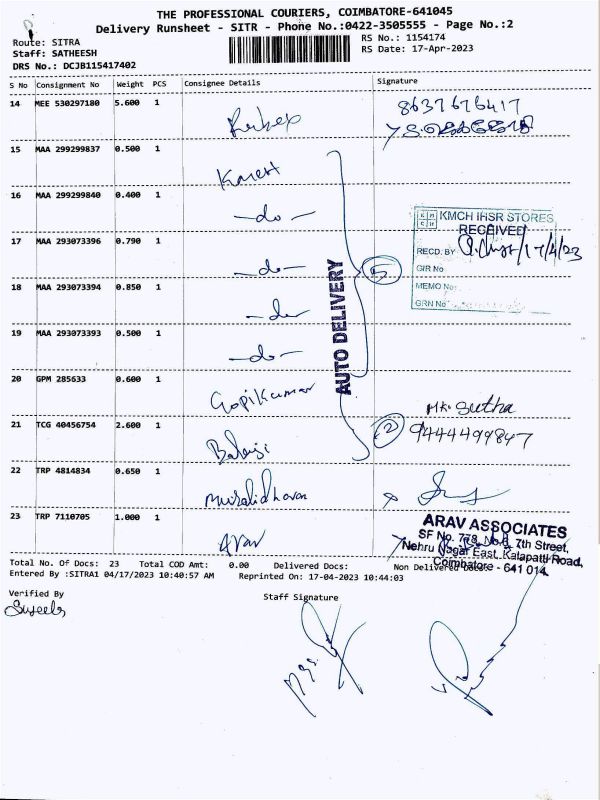 THE PROFESSIONAL COURIERS, COIMBATORE-641045
Delivery Runsheet - SITR - Phone No.:0422-3505555 - Page No.:2
Route: SITRA
Staff: SATHEESH
DRS No.: DCJB115417402
RS No.: 1154174
RS Date: 17-Apr-2023
S No Consignment No Weight PCS Consignee Details Signature
14 MEE 530297180 5.600 1 8637676417
15 MAA 299299837 0.500 1
16 MAA 299299840 0.400 1 -do-
KMCH IHSR STORES
RECEIVED
17 MAA 293073396 0.790 1 -do- 5
RECD. BY 17/4/23
GIR No
18 MAA 293073394 0.850 1 -do-
MEMO No:
GRN No
19 MAA 293073393 0.500 1 -do-
AUTO DELIVERY
20 GPM 285633 0.600 1 Gopikumar MK. Sutha
21 TCG 40456754 2.600 1 Balaji 2 9444499847
22 TRP 4814834 0.650 1 Muralidharan
23 TRP 7110705 1.000 1 Arav
ARAV ASSOCIATES
SF No. 778, No.6, 7th Street,
Nehru Nagar East, Kalapatti Road,
Coimbatore - 641 014.
Total No. Of Docs: 23 Total COD Amt: 0.00 Delivered Docs: Non Delivered Docs:
Entered By :SITRA1 04/17/2023 10:40:57 AM Reprinted On: 17-04-2023 10:44:03
Verified By
Staff Signature